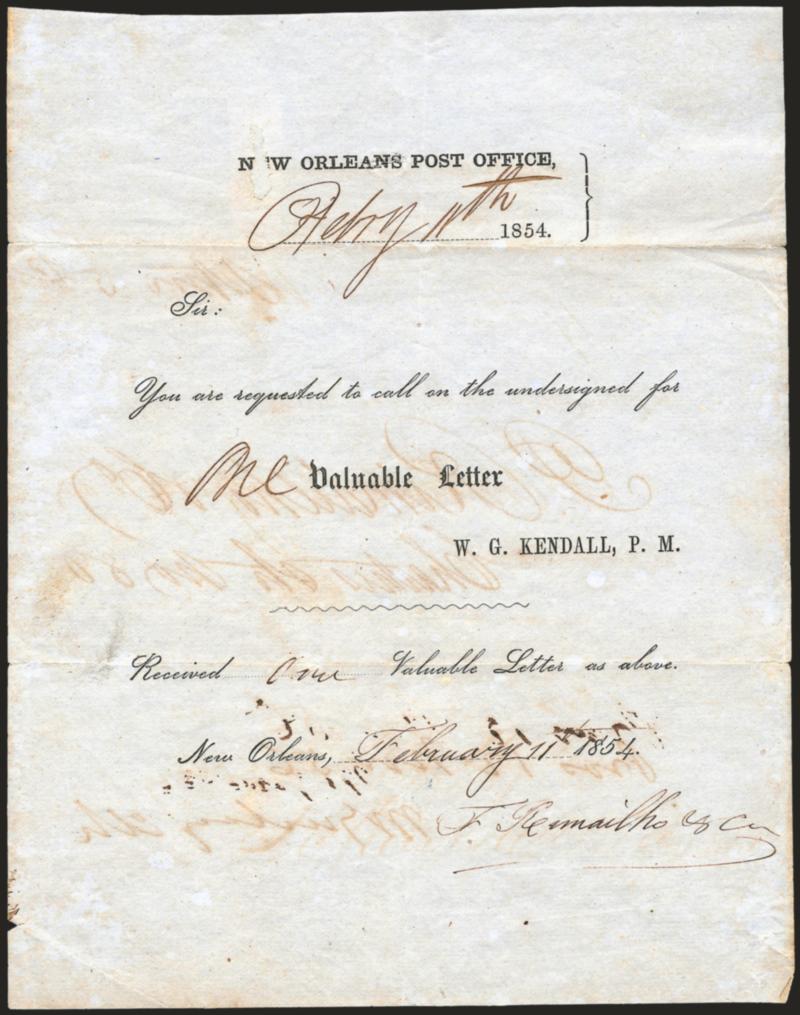 NEW ORLEANS POST OFFICE,
Feby 11th 1854.
Sir:
You are requested to call on the undersigned for
One Valuable Letter
W. G. KENDALL, P. M.
Received One Valuable Letter as above.
New Orleans, February 11th 1854.
F